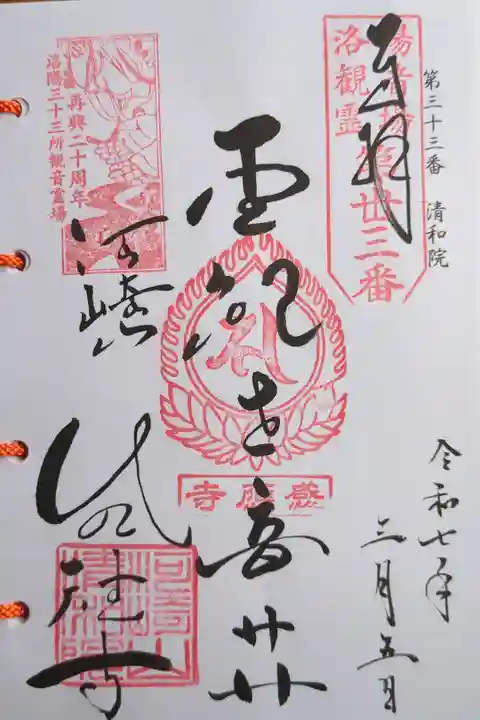 第三十三番 清和院
奉拝
洛陽
観音
霊場
第丗三番
令和七年
三月五日
聖観世音
感應寺
再興二十周年
洛陽三十三所観音霊場
河崎